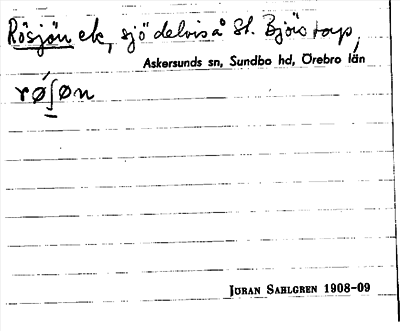 Rösjön ek, sjö delvis å St. Björstorp,
Askersunds sn, Sundbo hd, Örebro län
røʃøn
JÖRAN SAHLGREN 1908-09